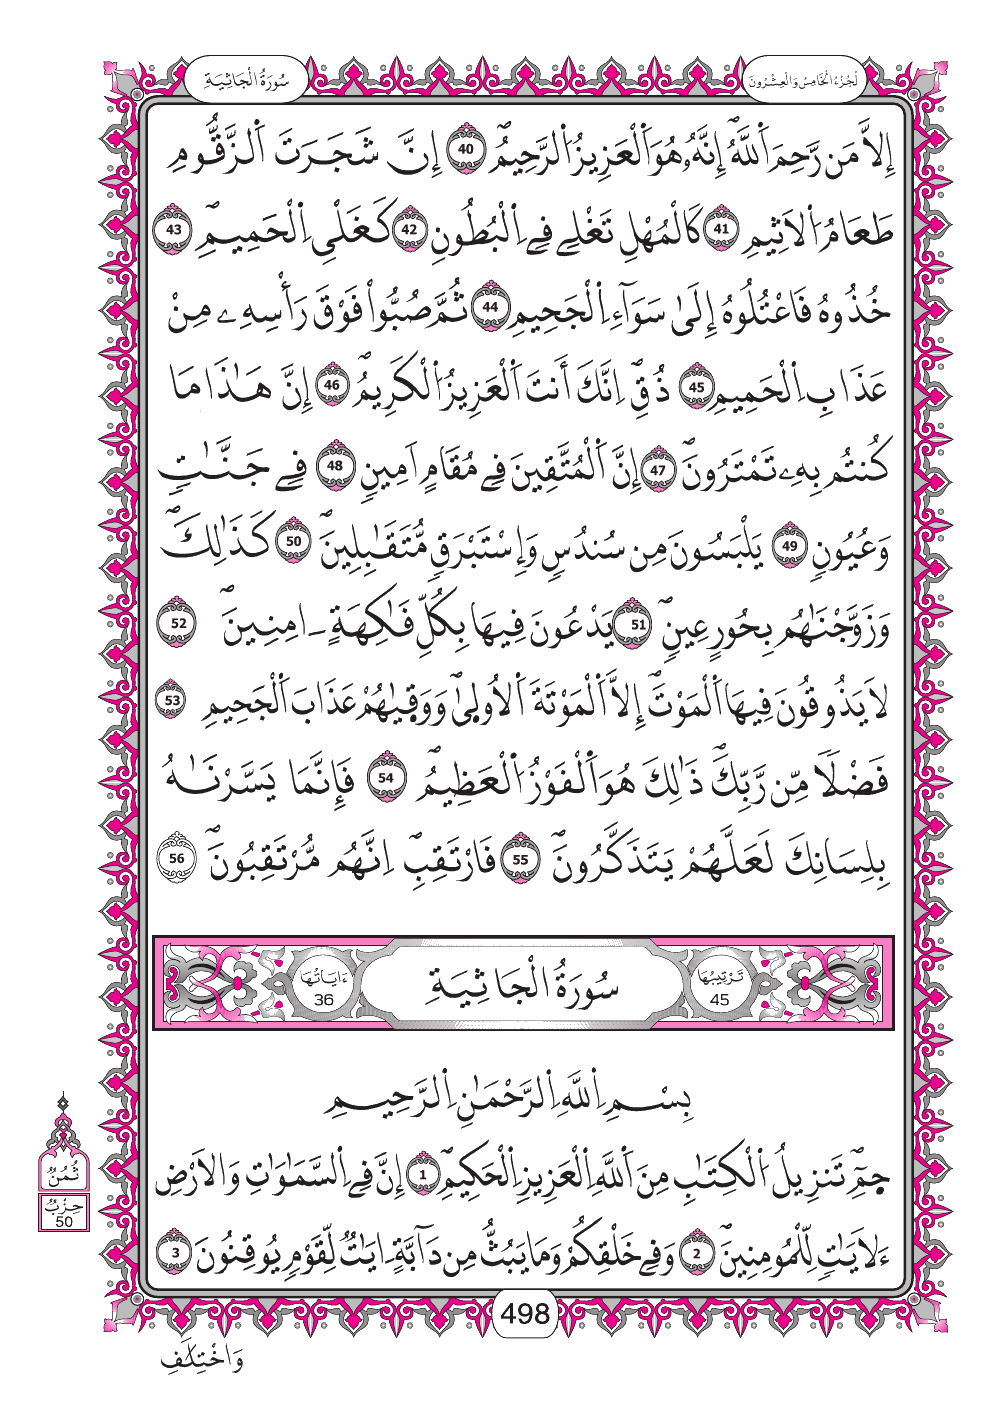 سُورَةُ الْجَاثِيَةِ
الْجُزْءُ الْخَامِسُ وَالْعِشْرُونَ
إِلَّا مَن رَّحِمَ اَ۬للَّهُۖ إِنَّهُۥ هُوَ اَ۬لْعَزِيزُ اُ۬لرَّحِيمُۖ 40 إِنَّ شَجَرَتَ اَ۬لزَّقُّومِ
طَعَامُ اُ۬لَاثِيمِ 41 كَالْمُهْلِ تَغْلِے فِے اِ۬لْبُطُونِ 42 كَغَلْيِ اِ۬لْحَمِيمِۖ 43
خُذُوهُ فَاعْتُلُوهُ إِلَىٰ سَوَآءِ اِ۬لْجَحِيمِ 44 ثُمَّ صُبُّواْ فَوْقَ رَأْسِهِۦ مِنْ
عَذَابِ اِ۬لْحَمِيمِ 45 ذُقِۖ اِنَّكَ أَنتَ اَ۬لْعَزِيزُ اُ۬لْكَرِيمُۖ 46 إِنَّ هَٰذَا مَا
كُنتُم بِهِۦ تَمْتَرُونَۖ 47 إِنَّ اَ۬لْمُتَّقِينَ فِے مُقَامٍ اَمِينٖ 48 فِے جَنَّٰتٖ
وَعُيُونٖ 49 يَلْبَسُونَ مِن سُندُسٖ وَإِسْتَبْرَقٖ مُّتَقَٰبِلِينَۖ 50 كَذَٰلِكَۖ
وَزَوَّجْنَٰهُم بِحُورٍ عِينٖۖ 51 يَدْعُونَ فِيهَا بِكُلِّ فَٰكِهَةٍ ـ امِنِينَۖ 52
لَا يَذُوقُونَ فِيهَا اَ۬لْمَوْتَۖ إِلَّا اَ۬لْمَوْتَةَ اَ۬لُاولَىٰۖ وَوَقَٰيهُمْ عَذَابَ اَ۬لْجَحِيمِ 53
فَضْلاٗ مِّن رَّبِّكَۖ ذَٰلِكَ هُوَ اَ۬لْفَوْزُ اُ۬لْعَظِيمُۖ 54 فَإِنَّمَا يَسَّرْنَٰهُ
بِلِسَانِكَ لَعَلَّهُمْ يَتَذَكَّرُونَۖ 55 فَارْتَقِبِۖ اِنَّهُم مُّرْتَقِبُونَۖ 56
تَرْتِيبُهَا 45
سُورَةُ الْجَاثِيَةِ
ءَايَاتُهَا 36
بِسْمِ اِ۬للَّهِ اِ۬لرَّحْمَٰنِ اِ۬لرَّحِيمِ
حٓمِٓۖ تَنزِيلُ اُ۬لْكِتَٰبِ مِنَ اَ۬للَّهِ اِ۬لْعَزِيزِ اِ۬لْحَكِيمِۖ 1 إِنَّ فِے اِ۬لسَّمَٰوَٰتِ وَالَارْضِ
ءَلَايَٰتٖ لِّلْمُومِنِينَۖ 2 وَفِے خَلْقِكُمْ وَمَا يَبُثُّ مِن دَآبَّةٍ ايَٰتٌ لِّقَوْمٍ يُوقِنُونَ 3
ثُمُنُ
حِزْبُ
50
498
وَاخْتِلَٰفِ